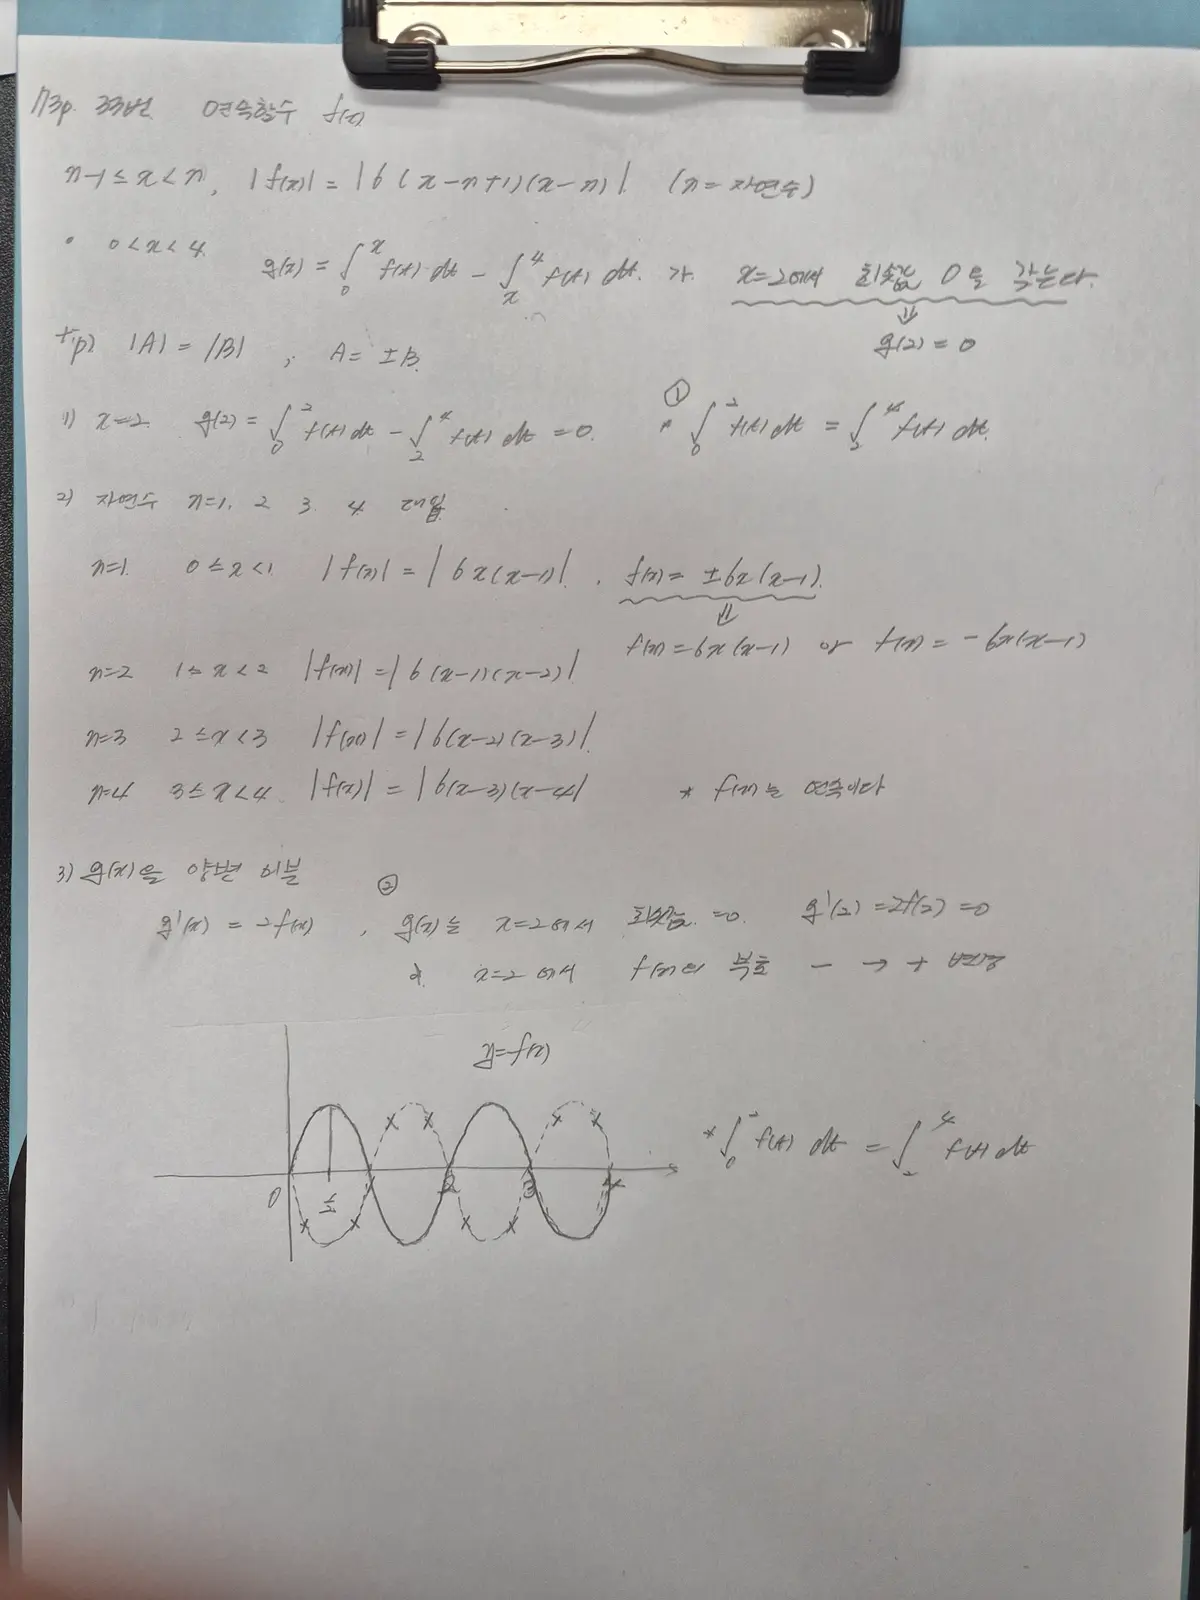 173p. 33번. 연속함수 f(x)
n-1 ≤ x < n, |f(x)| = |6(x-n+1)(x-n)|. (n = 자연수)
• 0<x<4. g(x) = ∫₀ˣ f(t) dt - ∫ₓ⁴ f(t) dt. 가 x=2에서 최솟값 0을 갖는다.
⇓
g(2) = 0
tip) |A| = |B| ; A = ±B.
1) x=2. g(2) = ∫₀² f(t) dt - ∫₂⁴ f(t) dt = 0. ① * ∫₀² f(t) dt = ∫₂⁴ f(t) dt.
2) 자연수 n=1. 2 3. 4. 대입.
n=1. 0 ≤ x < 1 |f(x)| = |6x(x-1)|. f(x) = ±6x(x-1).
⇓
f(x) = 6x(x-1) or f(x) = -6x(x-1)
n=2 1 ≤ x < 2 |f(x)| = |6(x-1)(x-2)|
n=3 2 ≤ x < 3 |f(x)| = |6(x-2)(x-3)|.
n=4 3 ≤ x < 4 |f(x)| = |6(x-3)(x-4)| * f(x)는 연속이다
3) g(x)을 양변 미분
g'(x) = 2f(x) , ② g(x)는 x=2에서 최솟값 = 0. g'(2) = 2f(2) = 0
x=2에서 f(x)의 부호 - → + 변경
y=f(x)
* ∫₀² f(t) dt = ∫₂⁴ f(t) dt
0 1/2 2 3 4